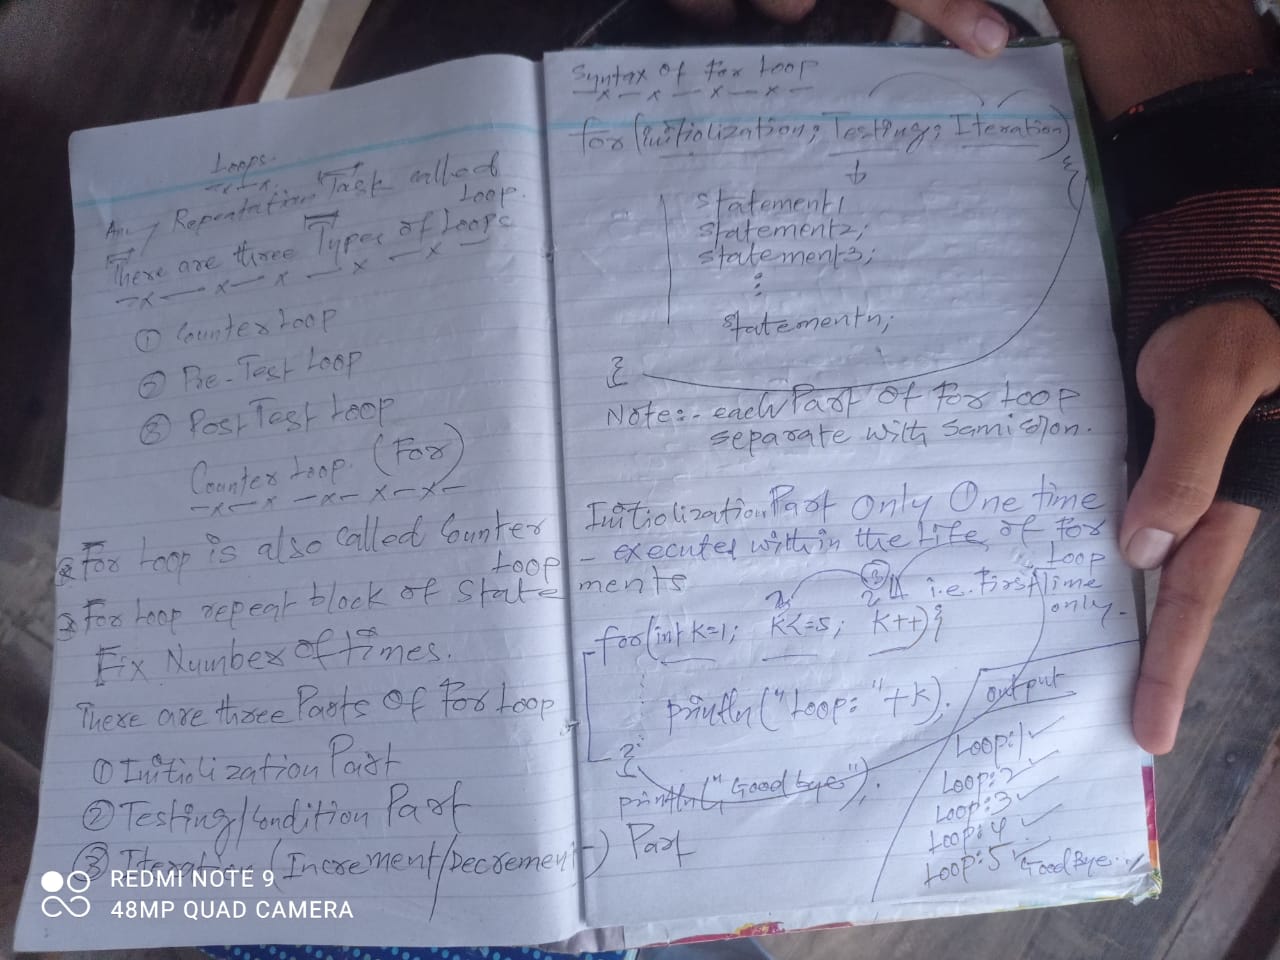 Loops.
Any Repeatation Task called
Loop.
There are three Types of Loops
① Counter Loop
② Pre-Test Loop
③ Post Test Loop
Counter Loop. (For)
For Loop is also called Counter
Loop
For Loop repeat block of statements
Fix Number of times.
There are three Parts of For Loop
① Initiolization Part
② Testing/Condition Part
③ Iteration (Increment/Decrement) Part
Syntax of For Loop
for (initiolization; Testing; Iteration)
{
statement1
statement2;
statement3;
statementn;
}
Note:- each Part of For Loop
separate with samicolon.
Initiolization Part Only One time
- executed within the Life of For
Loop
i.e. First Time
only.
for(int k=1; k<=5; k++){
println("Loop:"+k).
}
println("Good bye");
output
Loop:1
Loop:2
Loop:3
Loop:4
Loop:5
Good Bye..
REDMI NOTE 9
48MP QUAD CAMERA